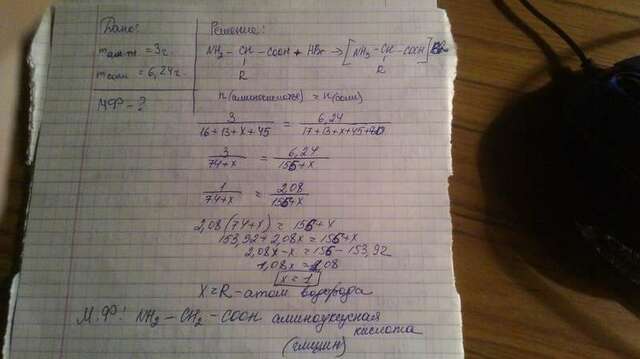 Дано:
m ам к-ты = 3г.
m соли = 6,24г.
МФ - ?
Решение:
NH₂ – CH – COOH + HBr → [NH₃ – CH – COOH]Br
R
R
n(аминокислоты) = n(соли)
3 / 16+13+x+45 = 6,24 / 17+13+x+45+80
3 / 74+x = 6,24 / 156+x
1 / 74+x = 2,08 / 156+x
2,08(74+x) = 156+x
153,92+2,08x = 156+x
2,08x – x = 156 – 153,92
1,08x = 2,08
x = 1
X = R – атом водорода
М.Ф: NH₂ – CH₂ – COOH аминоуксусная
кислота
(глицин)